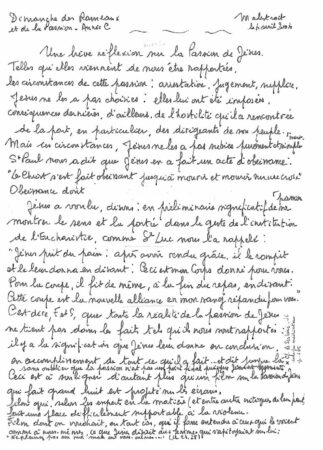 Dimanche des Rameaux
et de la Passion - Année C
Malestroit
4 avril 2004
Une brève réflexion sur la Passion de Jésus.
Telles qu'elles viennent de nous être rapportées,
les circonstances de cette passion : arrestation, jugement, supplice,
Jésus ne les a pas choisies : elles lui ont été imposées,
conséquences dernières, d'ailleurs, de l'hostilité qu'il a rencontrée
de la part, en particulier, des dirigeants de son peuple.
Mais ces circonstances, Jésus ne les a pas subies purement et simplement
St Paul nous a dit que Jésus en a fait un acte d'obéissance.
"Le Christ s'est fait obéissant jusqu'à mourir et mourir sur une croix"
Obéissance dont
Jésus a voulu, disons : en préliminaire significatif de sa passion
montrer le sens et la portée dans le geste de l'institution
de l'Eucharistie, comme St Luc nous l'a rappelé :
"Jésus prit du pain : après avoir rendu grâce, il le rompit
et le leur donna en disant : Ceci est mon Corps donné pour vous.
Pour la coupe, il fit de même, à la fin du repas, en disant :
Cette coupe est la nouvelle alliance en mon sang répandu pour vous."
C'est dire, F et S, que toute la réalité de la passion de Jésus
ne tient pas dans les faits tels qu'ils nous sont rapportés :
il y a la signification que Jésus leur donne en conclusion,
en accomplissement de tout ce qu'il a fait et dit
sans oublier que la passion n'est pas un point final
Ceci est à souligner d'autant plus qu'un film sur la Passion de Jésus
qui fait grand bruit est projeté sur les écrans,
film qui, selon les experts en la matière (et entre autre critiques de leur part)
fait une place difficilement supportable à la violence.
Film dont on voudrait, en tout cas, qu'il fasse entendre à ceux qui le voient